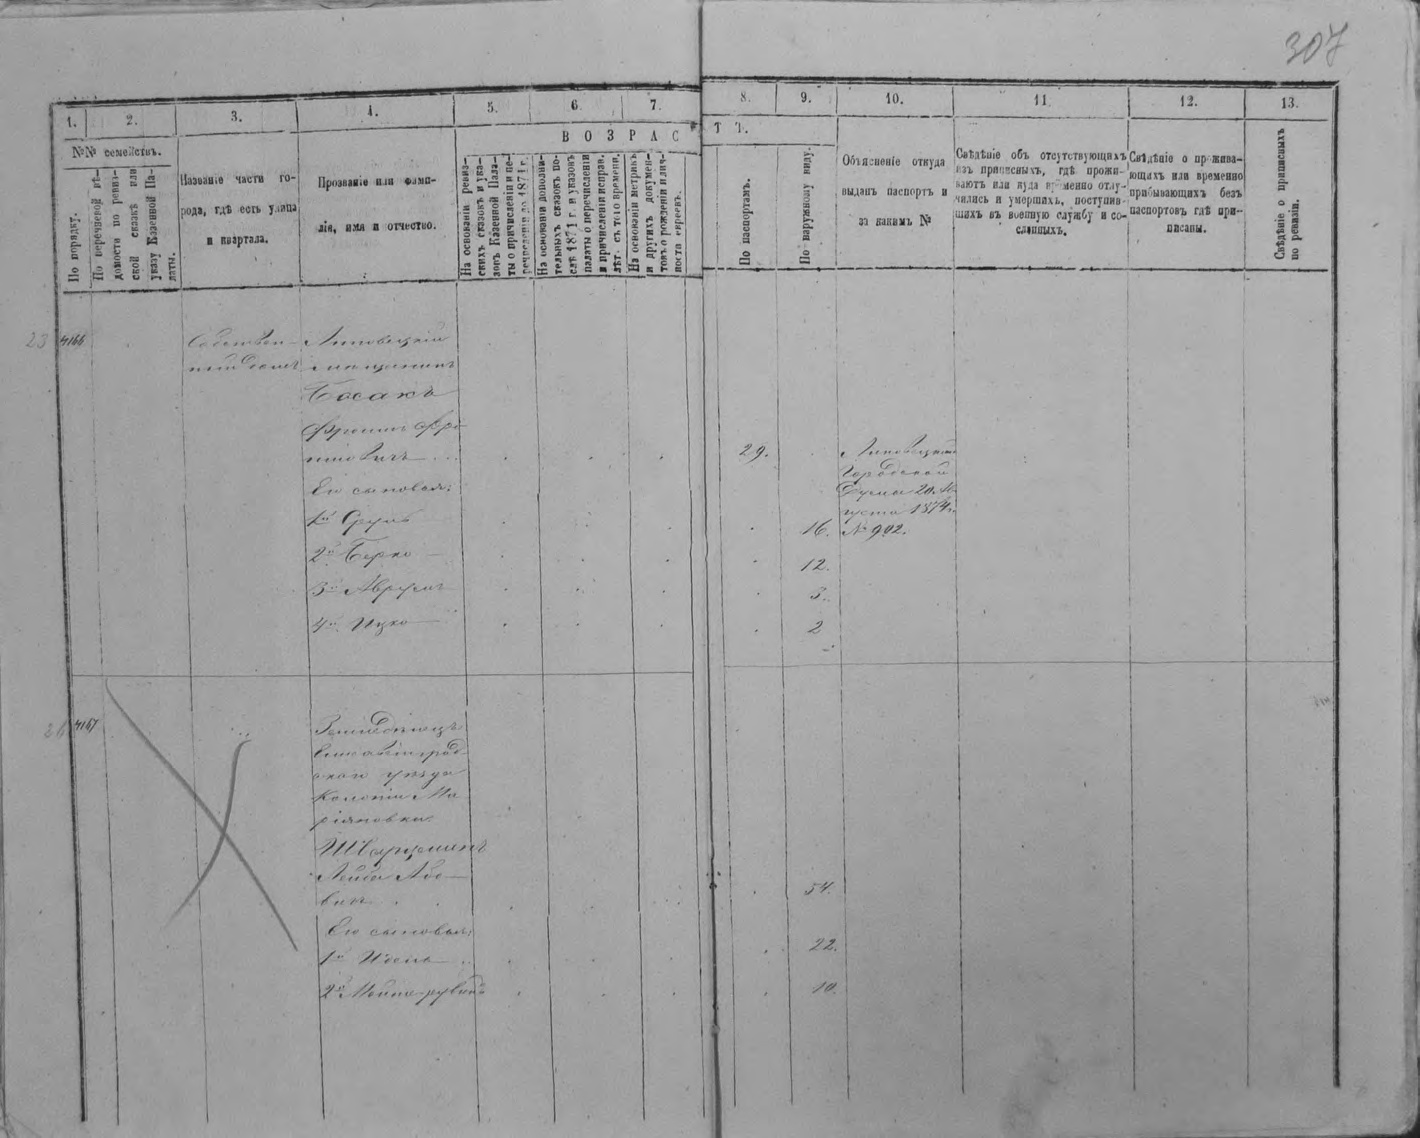 307
1.
2.
3.
4.
5.
6
7.
8.
9.
10.
11
12.
13.
ВОЗРАС
ТЪ.
По порядку.
№№ семействъ.
По перечневой вѣ-
домости по ревиз-
ской сказкѣ или
указу Казенной Па-
латы.
Названіе части го-
рода, гдѣ есть улица
и квартала.
Прозваніе или фами-
лія, имя и отчество.
На основаніи ревиз-
скихъ сказокъ и ука-
зовъ Казенной Пала-
ты о причисленіи и пе-
речисленіи до 1871 г.
На основаніи дополни-
тельныхъ сказокъ по-
слѣ 1871 г. и указовъ
палаты о перечисленіи
и причисленіи исправ.
лѣт. съ того времени.
На основаніи метрикъ
и другихъ докумен-
товъ о рожденіи и лич-
ности евреевъ.
По паспортамъ.
По наружному виду.
Объясненіе откуда
выданъ паспортъ и
за какимъ №
Свѣдѣніе объ отсутствующихъ
изъ приписныхъ, гдѣ прожи-
ваютъ или куда временно отлу-
чились и умершихъ, поступив-
шихъ въ военную службу и со-
сланныхъ.
Свѣдѣніе о прожива-
ющихъ или временно
прибывающихъ безъ
паспортовъ гдѣ при-
писаны.
Свѣдѣніе о приписныхъ
по ревизіи.
23
4166
Собствен-
ный домъ
Липовецкій
мѣщанинъ
Босакъ
Фроимъ Фро-
имовичъ
29.
Липовецкой
Городской
Думы 20 Ав-
густа 1874 г.
№ 902.
Его сыновья:
1й Срулъ
16.
2й Берко
12.
3й Аврумъ
3.
4й Ицко
2
4167
Земледѣлецъ
Елисаветград-
скаго уѣзда
Колоніи Ма-
ріяновки
Шварцманъ
Лейба Або-
вичъ
54.
Его сыновья:
1й
22.
2й
10.